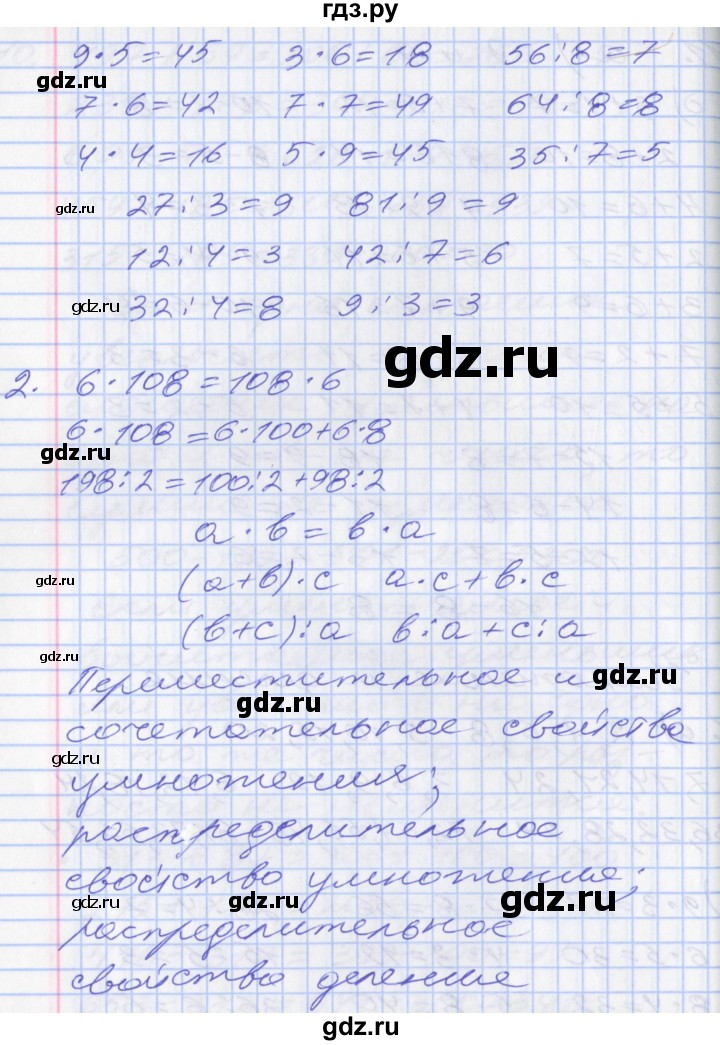 гдз.ру
9·5=45 3·6=18 56:8=7
gdz.ru
7·6=42 7·7=49 64:8=8
4·4=16 5·9=45 35:7=5
gdz.ru 27:3=9 81:9=9
12:4=3 42:7=6
gdz.ru 32:4=8 9:3=3
gdz.ru
2. 6·108=108·6
6·108=6·100+6·8
gdz.ru
198:2=100:2+98:2
a·b=b·a
gdz.ru (a+b)·c a·c+b·c
(b+c):a b:a+c:a
gdz.ru
Переместительное и
gdz.ru gdz.ru
сочетательное свойства
gdz.ru
умножения;
распределительное
gdz.ru
свойство умножения;
gdz.ru gdz.ru
распределительное
свойство деление
gdz.ru
gdz.ru